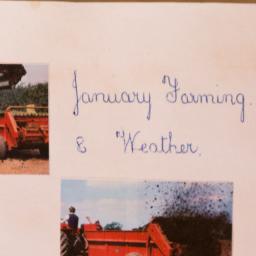 January Farming.
& Weather.